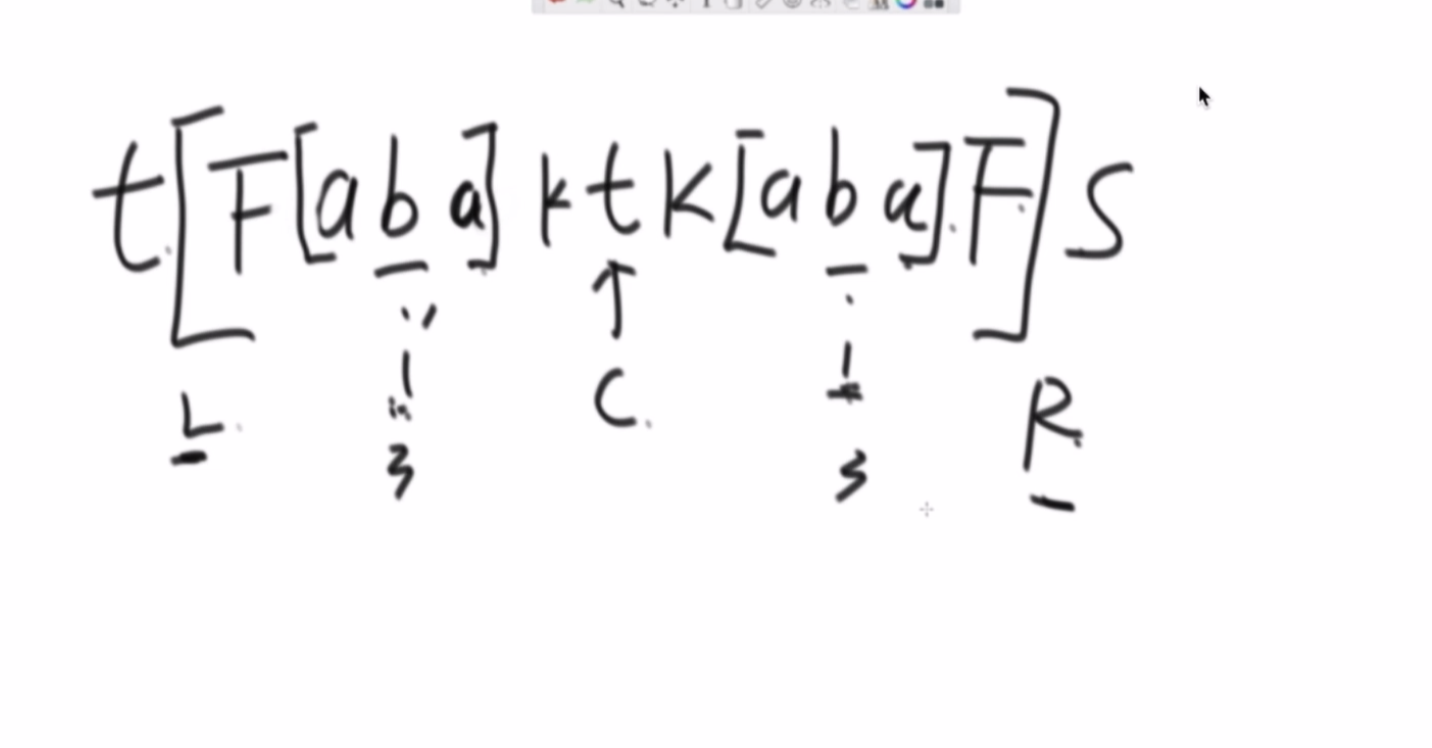 t[F[aba]ktk[aba]F]S
i' i
C
L R
3 3